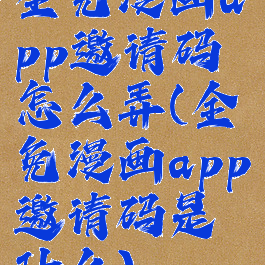 全免漫画a
pp邀请码
怎么弄(全
免漫画app
邀请码是
什么)